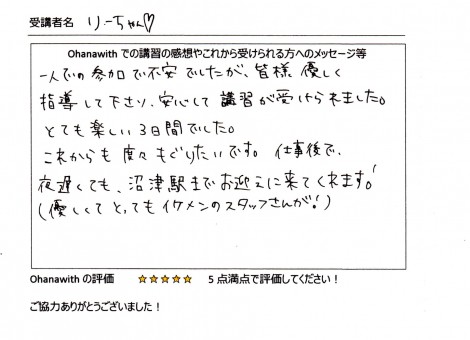 受講者名 りーちゃん♡
Ohanawith での講習の感想やこれから受けられる方へのメッセージ等
一人での参加で不安でしたが、皆様優しく
指導して下さり、安心して講習が受けられました。
とても楽しい3日間でした。
これからも度々もぐりたいです。仕事後で、
夜遅くても、沼津駅までお迎えに来てくれます!
(優しくてとってもイケメンのスタッフさんが!)
Ohanawith の評価 ★★★★★ 5 点満点で評価してください！
ご協力ありがとうございました！